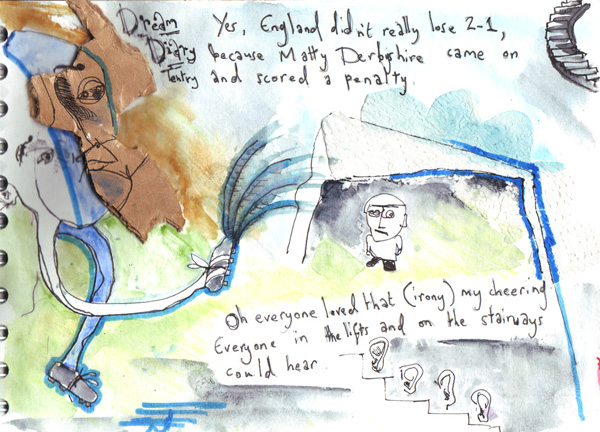 Dream
Diary
Entry
Yes, England didn't really lose 2-1,
because Matty Derbyshire came on
and scored a penalty.
Oh everyone loved that (irony) my cheering
Everyone in the lifts and on the stairways
could hear